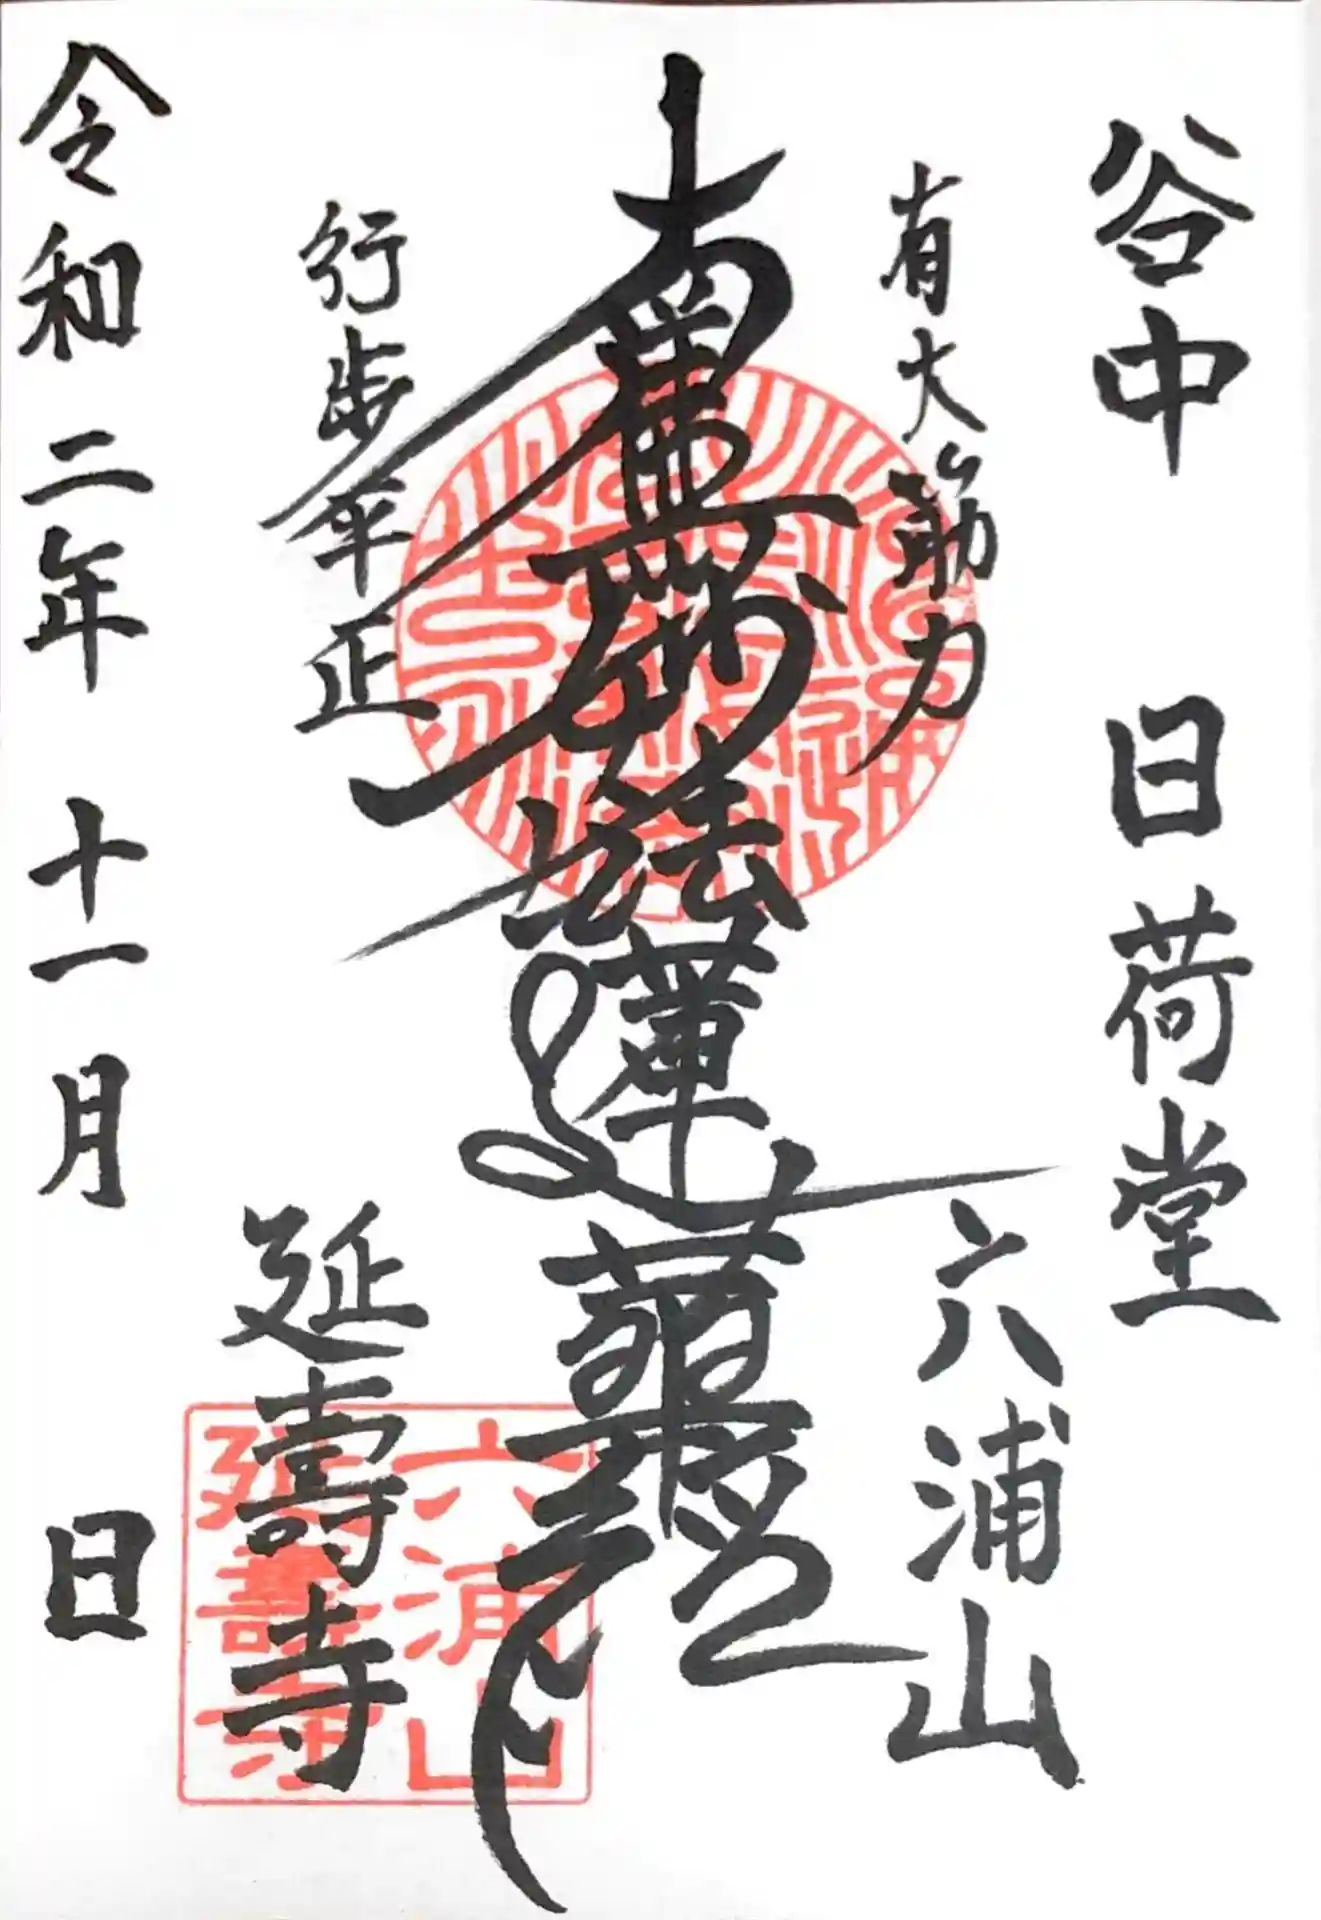 谷中 日荷堂
有大筋力
六浦山
南無妙法蓮華経
行歩平正
延壽寺
六浦山
延壽寺
令和二年十一月 日